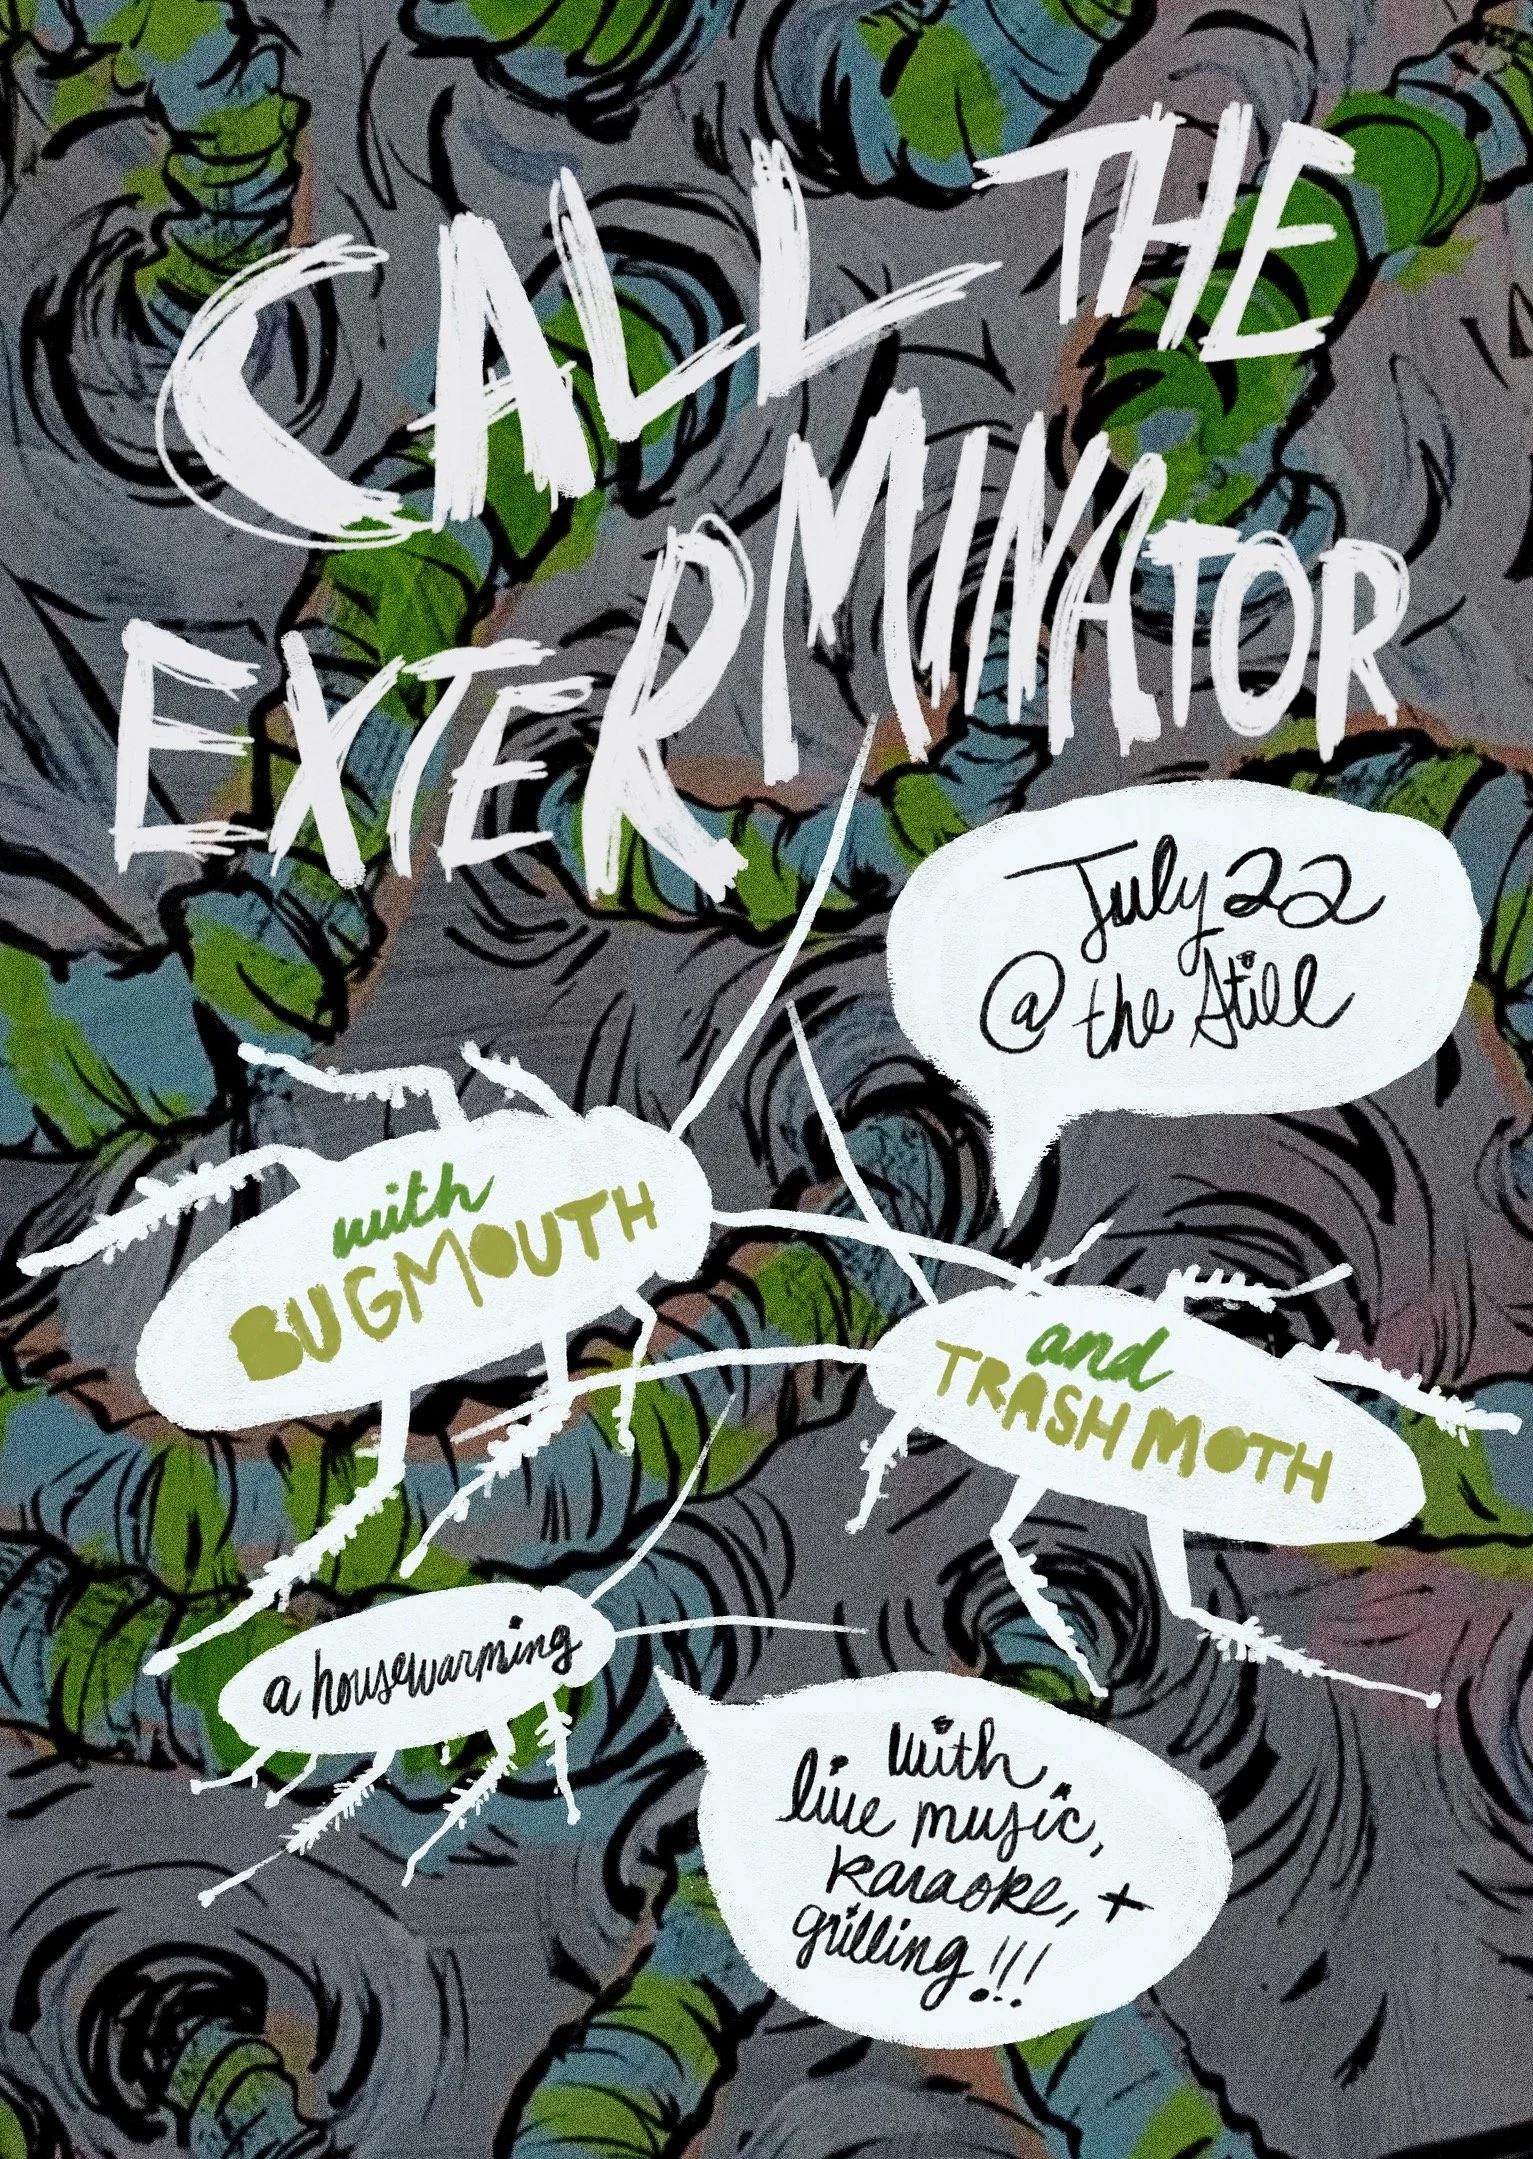 CALL THE
EXTERMINATOR
July 22
@ the Still
with
BUGMOUTH
and
TRASH MOTH
a housewarming
with
live music,
karaoke, +
grilling!!!